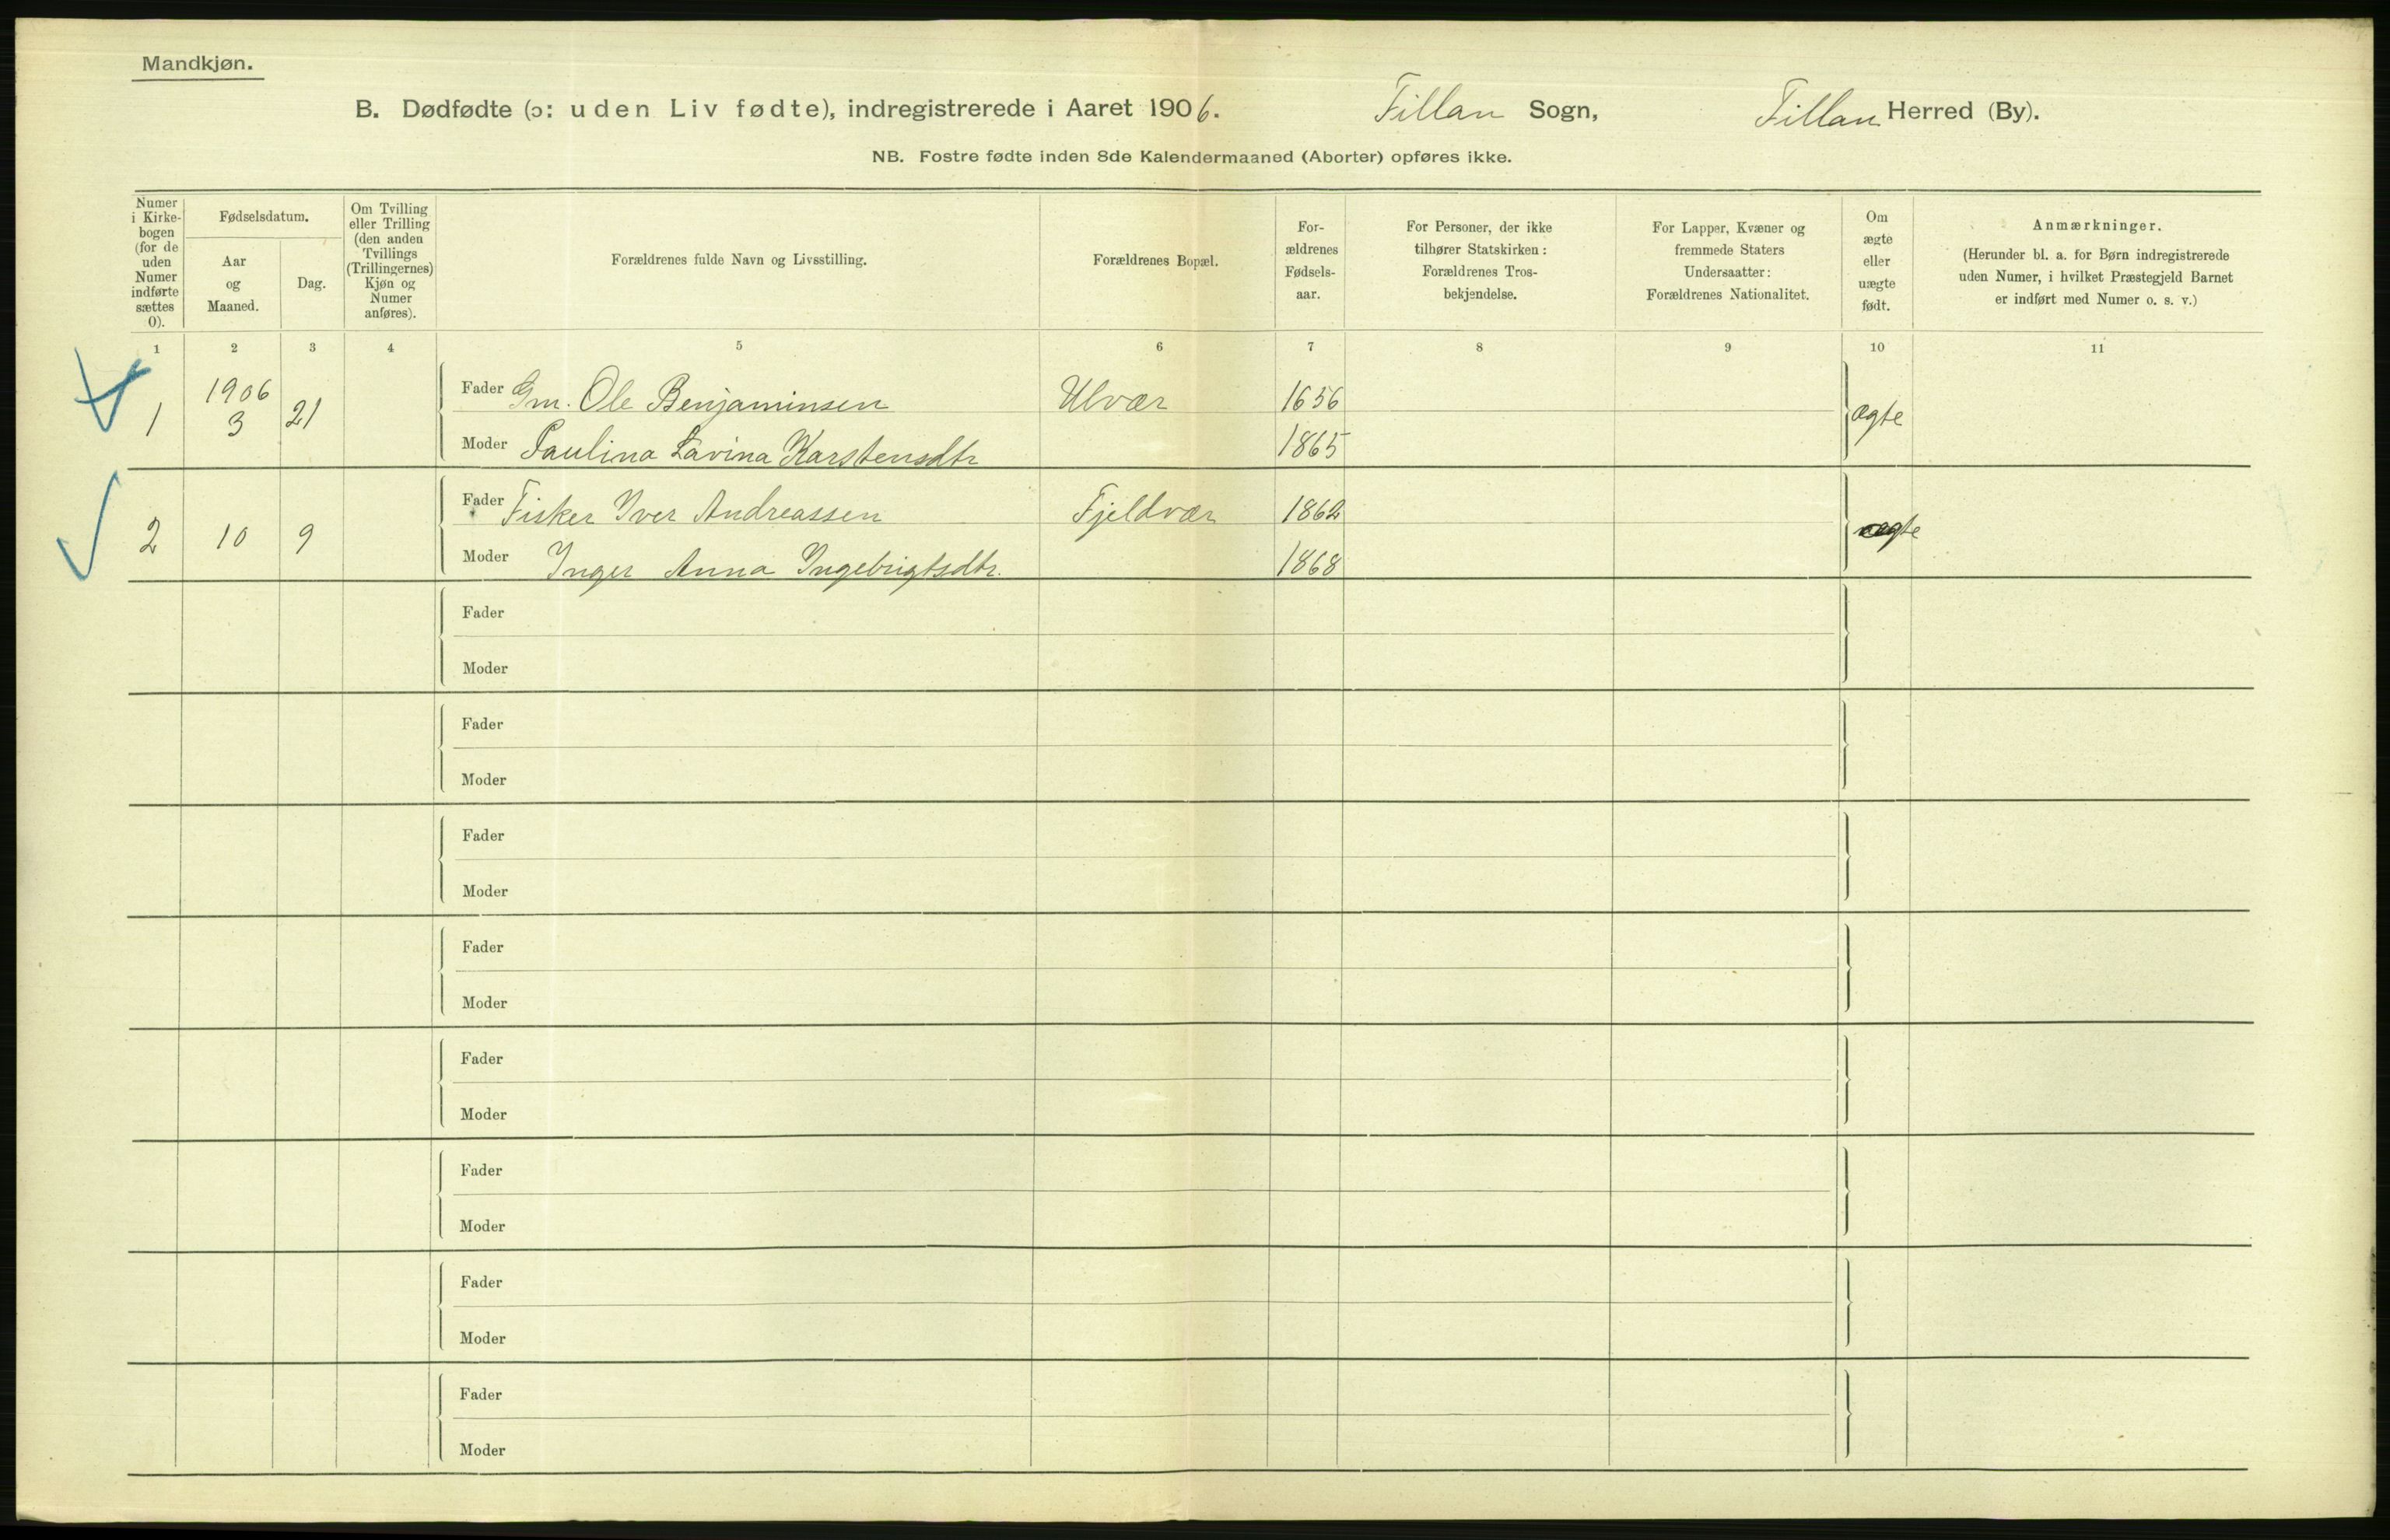 Mandkjøn.
B. Dødfødte (ɔ: uden Liv fødte), indregistrerede i Aaret 1906. Fillan Sogn, Fillan Herred (By).
NB. Fostre fødte inden 8de Kalendermaaned (Aborter) opføres ikke.
Numer i Kirke-bogen (for de uden Numer indførte sættes 0).
Fødselsdatum.
Aar og Maaned.
Dag.
Om Tvilling eller Trilling (den anden Tvillings (Trillingernes) Kjøn og Numer anføres).
Forældrenes fulde Navn og Livsstilling.
Forældrenes Bopæl.
For-ældrenes Fødsels-aar.
For Personer, der ikke tilhører Statskirken: Forældrenes Tros-bekjendelse.
For Lapper, Kvæner og fremmede Staters Undersaatter: Forældrenes Nationalitet.
Om ægte eller uægte født.
Anmærkninger.
(Herunder bl. a. for Børn indregistrerede uden Numer, i hvilket Præstegjeld Barnet er indført med Numer o. s. v.)
1 2 3 4 5 6 7 8 9 10 11
1906
1 3 21 Fader Gm. Ole Benjaminsen Ulvær 1656 ægte
Moder Paulina Lavina Karstensdtr 1865
2 10 9 Fader Fisker Iver Andreassen Fjeldvær 1862 ægte
Moder Inger Anna Ingebrigtsdtr. 1868
Fader
Moder
Fader
Moder
Fader
Moder
Fader
Moder
Fader
Moder
Fader
Moder
Fader
Moder
Fader
Moder